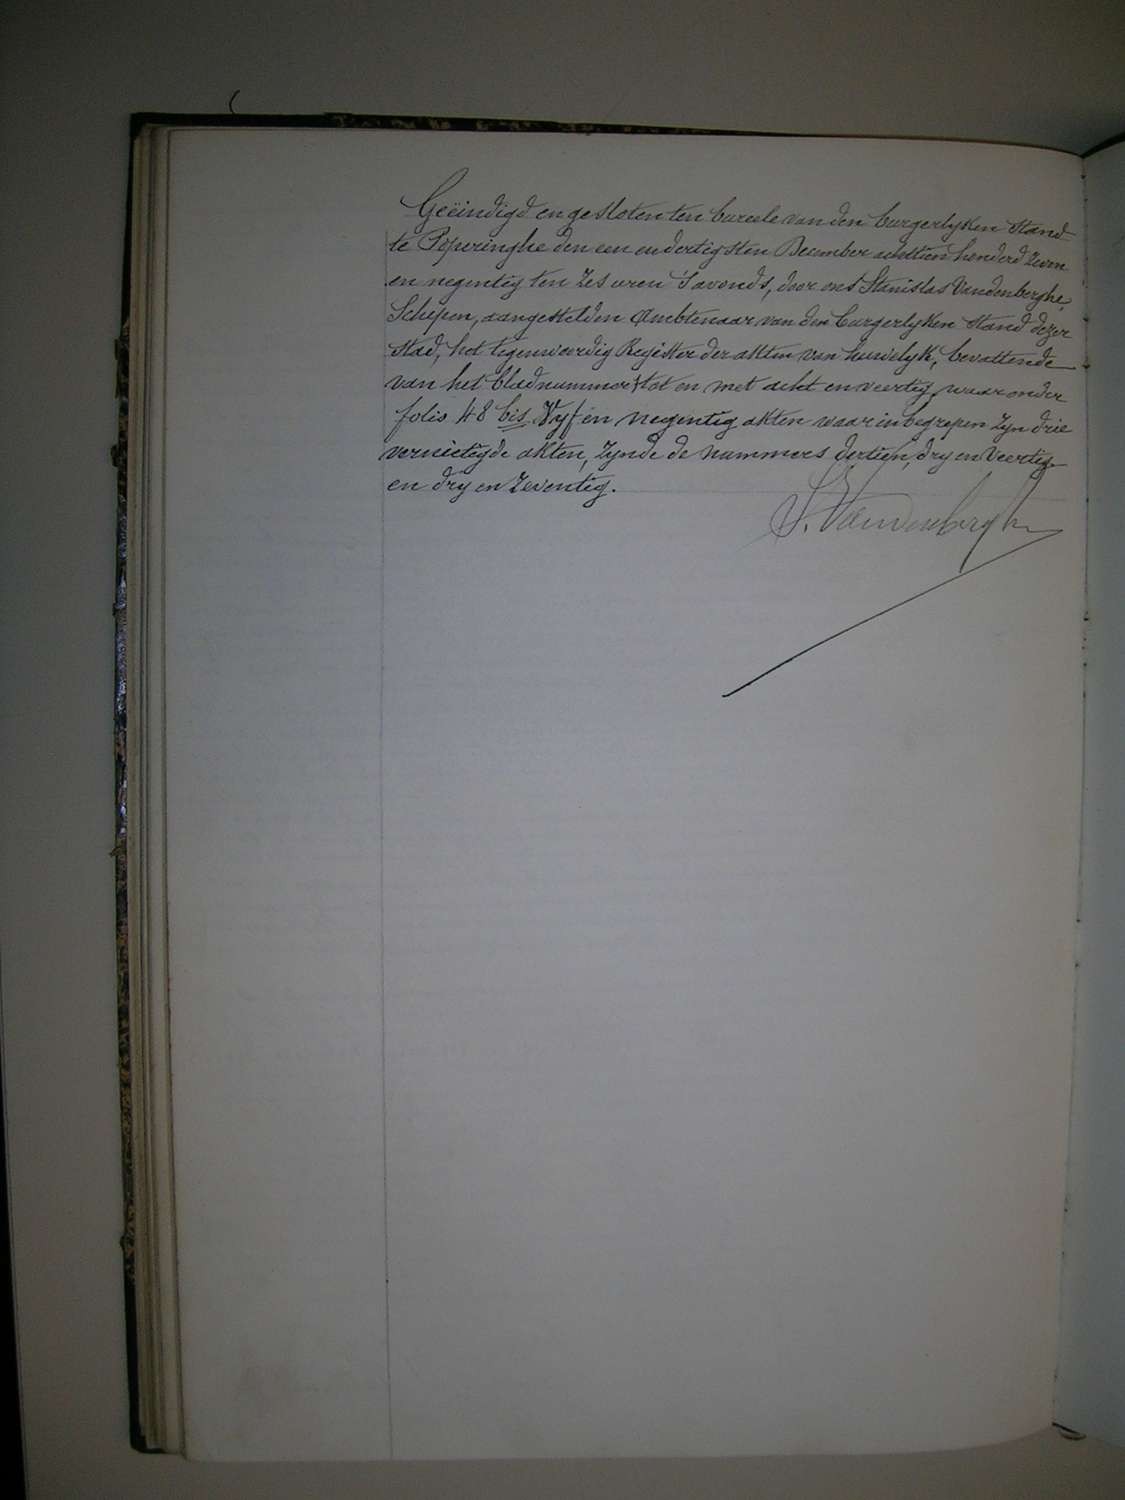 Geëindigd en gesloten ten bureele van den burgerlyken Stand
te Poperinghe den een en dertigsten December achttien honderd zeven
en negentig ten zes uren 's avonds, door ons Stanislas Vandenberghe,
Schepen, aangestelden Ambtenaar van den burgerlyken Stand dezer
stad, het tegenwoordig Register der akten van huwelyk, bevattende
van het bladnummer 1 tot en met acht en veertig, waaronder
folio 48 bis, Vyf en negentig akten waarin begrepen zyn drie
vernietigde akten, zynde de nummers dertien, dry en veertig
en dry en zeventig.
S. Vandenberghe